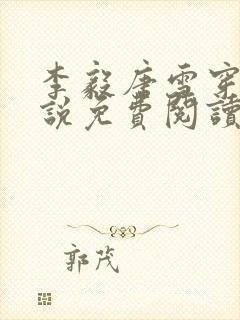 李毅唐雪穿
說免費閱讀
郭茂